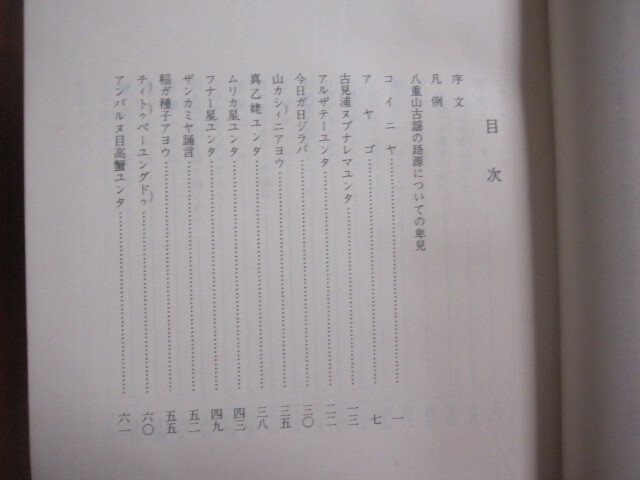 目次
序文
凡例
八重山古謡の語源についての卑見
コイニヤ……………一
アヤゴ……………七
古見浦ヌブナレマユンタ……………一三
アルザテーユンタ……………二二
今日が日ジラバ……………三〇
山カシィニアヨウ……………三五
真乙姥ユンタ……………三八
ムリカ星ユンタ……………四三
フナー星ユンタ……………四九
ザンカミヤ誦言……………五二
稲が種子アヨウ……………五五
チィトゥベーユングドゥ……………六〇
アンパルヌ目高蟹ユンタ……………六一